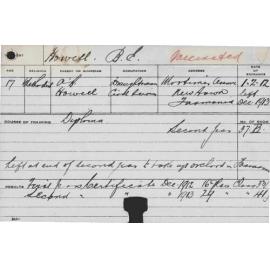 Howell B. E. Vaccinated
AGE RELIGION PARENT OR GUARDIAN OCCUPATION ADDRESS DATE OF ENTRANCE
17 Methodist A. Draughtsman Mortimer Avenue 1.2.12
Howell Civil New Town left
Tasmania Dec 1913
COURSE OF TRAINING Diploma Second year 37
Left at end of second year to take up orchard in Tasmania
RESULTS First year Certificate Dec 1912 16 Pass Class
Second " " " 1913 24 " "